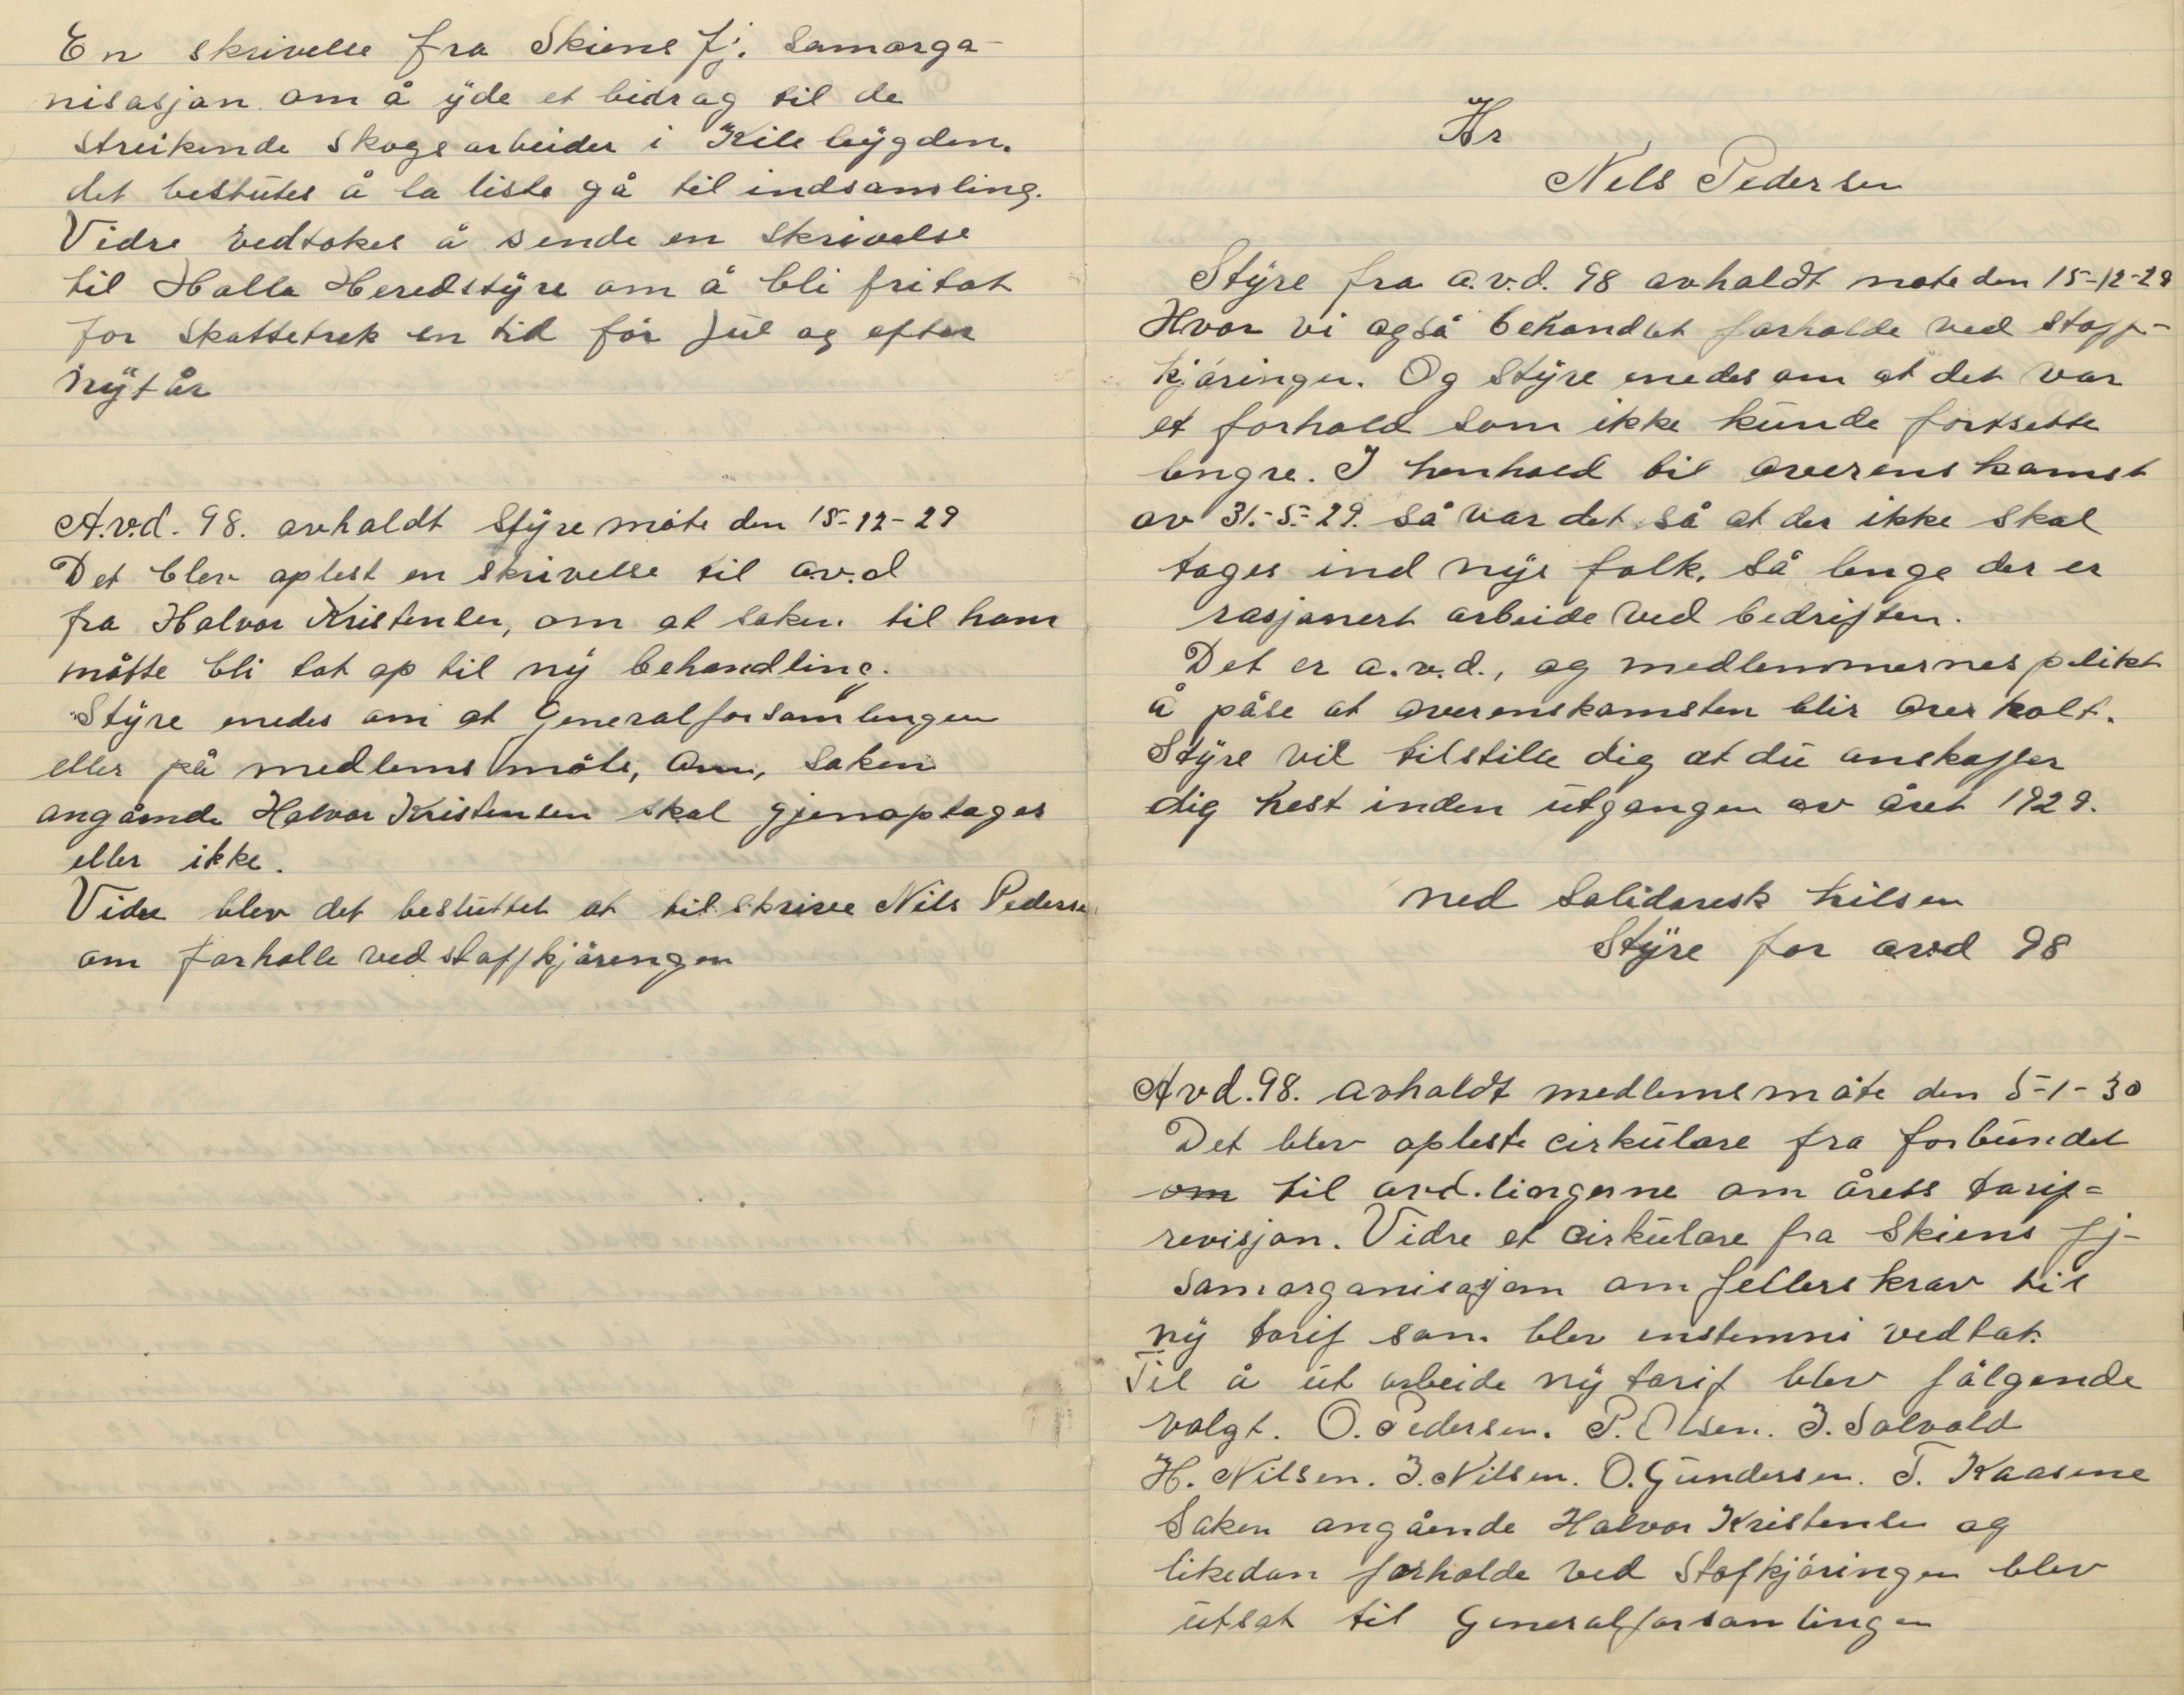 En skrivelse fra Skiens fj. Samorga-
nisasjon om å yde et bidrag til de
streikende skogsarbeider i Kilebygden.
det beslutes å la liste gå til indsamling.
Vidre vedtokes å sende en skrivelse
til Holla Heredstyre om å bli fritat
for skattetrek en tid før Jul og efter
nytår
A.v.d. 98. avholdt Styremøte den 15-12-29
Det blev oplest en skrivelse til av.d
fra Halvor Kristensen, om at saken til ham
måtte bli tat op til ny behandling.
Styre enedes om at Generalforsamlingen
eller på medlemsmøte, om, saken
angående Halvor Kristensen skal gjenoptages
eller ikke.
Vidre blev det besluttet at tilskrive Nils Pedersen
om forholle ved stoffkjøringen
Hr
Nels Pedersen
Styre fra a.v.d. 98 avholdt møte den 15-12-29
Hvor vi også behandlet forholde ved stoff-
kjøringen. Og Styre enedes om at det var
et forhold som ikke kunde fortsette
lengre. I henhold til overenskomst
av 31.-5.-29. så var det så at der ikke skal
tages ind nye folk, så lenge der er
rasjonert arbeide ved bedriften.
Det er a.v.d., og medlemmernes plikt
å påse at overenskomsten blir overholt.
Styre vil tilstille dig at du anskaffer
dig hest inden utgangen av året 1929.
med Solidarisk hilsen
Styre for avd 98
Avd. 98. avholdt medlemsmøte den 5-1-30
Det blev opleste cirkulare fra forbundet
om til avd.lingerne om årets tarif=
revisjon. Vidre et cirkulare fra Skiens fj-
Samorganisasjon om felleskrav til
ny tarif som blev enstemni vedtat.
Til å utarbeide ny tarif blev følgende
valgt. O. Pedersen. P. Olsen. J. Solvold
H. Nilsen. J. Nilsen. O. Gundersen. T. Kaasene
Saken angående Halvor Kristensen og
likedan forholde ved Stofkjøringen blev
utsat til Generalforsamlingen